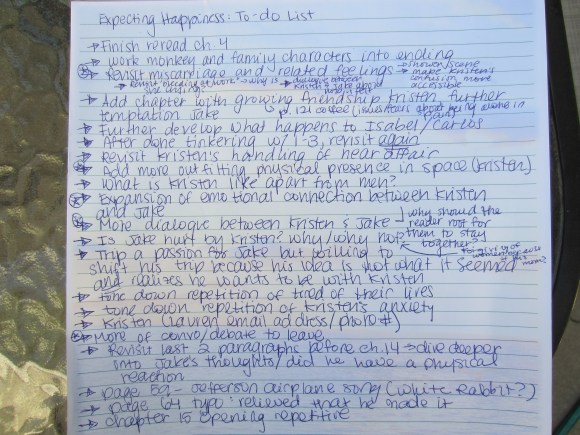 Expecting Happiness: To-do List
→ Finish reread ch. 4
→ work monkey and family characters into ending
→ Revisit miscarriage and related feelings → shower scene
→ Revisit meeting at work → why is → dialogue between → make Kristen's
Kristen & Jake about confusion more
accessible
→ Add chapter with growing friendship Kristen further
temptation Jake p. 121 coffee (issues/torn about being alone in
→ Further develop what happens to Isabel/Carlos
→ After done tinkering w/ 1-3, revisit again
→ Revisit Kristen's handling of near affair
→ Add more outfitting physical presence in space (Kristen)
→ What is Kristen like apart from men?
→ Expansion of emotional connection between Kristen
and Jake
→ More dialogue between Kristen & Jake why should the
→ Is Jake hurt by Kristen? why/why not reader root for
them to stay
together?
→ Trip a passion for Jake but willing to
shift his trip because his idea is not what it seemed
and realizes he wants to be with Kristen
→ tone down repetition of tired of their lives
→ tone down repetition of Kristen's anxiety
→ Kristen (Lauren email address/phone #)
→ More of convo/debate to leave
→ Revisit last 2 paragraphs before ch. 14 → dive deeper
into Jake's thoughts/did he have a physical
reaction
→ page 52 - Jefferson airplane song (White Rabbit?)
→ page 64 typo: relieved that he made it
→ chapter 15 opening repetitive